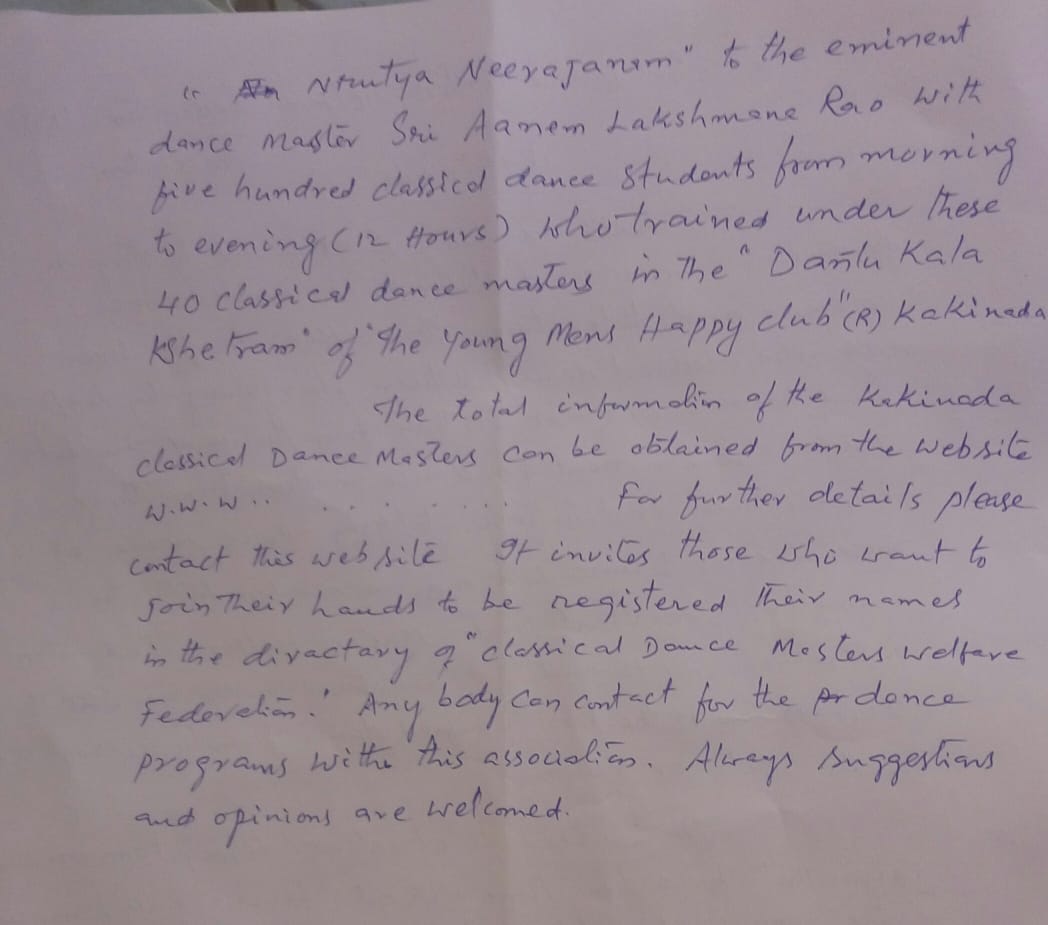 " Nrutya Neerajanam" to the eminent
dance master Sri Aanem Lakshmana Rao with
five hundred classical dance students from morning
to evening (12 Hours) who trained under these
40 classical dance masters in the " Dantu Kala
Kshetram" of "The Young Mens Happy club" (R) Kakinada
The total information of the Kakinada
classical Dance Masters can be obtained from the website
W.W.W .. . . . . . . . For further details please
contact this website It invites those who want to
join their hands to be registered their names
in the divactary of "classical Dance Masters welfare
Federation." Any body can contact for the dance
programs withe this association. Always suggestions
and opinions are welcomed.